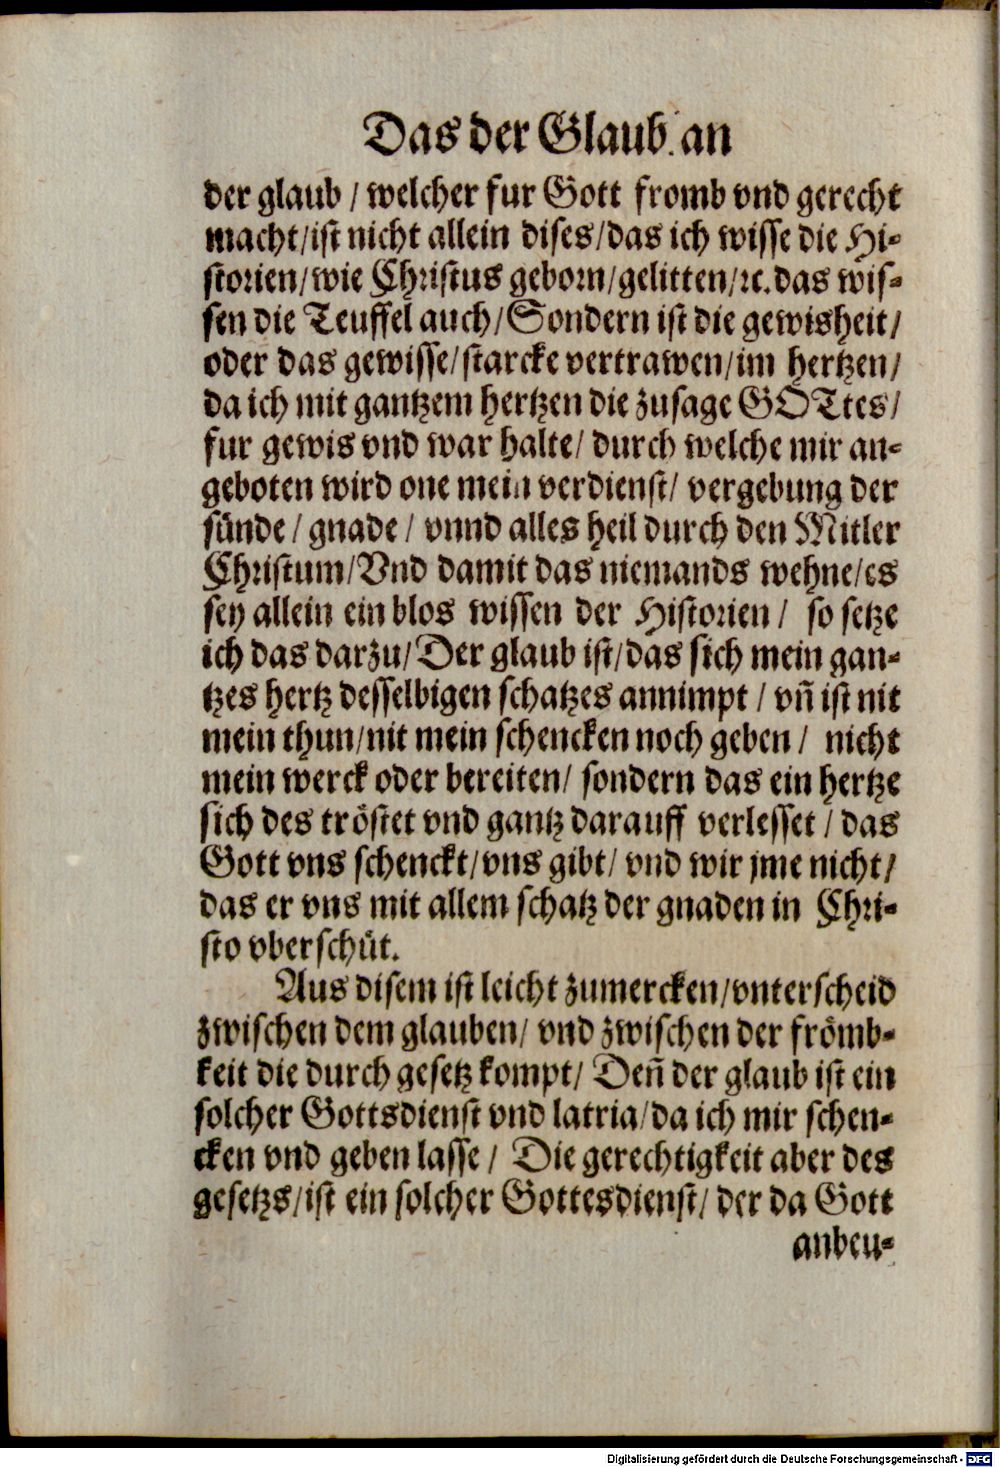 Das der Glaub. an
der glaub / welcher fur Gott fromb vnd gerecht
macht/ist nicht allein dises/das ich wisse die Hi-
storien/wie Christus geborn/gelitten/ꝛc.das wis-
sen die Teuffel auch/Sondern ist die gewisheit/
oder das gewisse/starcke vertrawen/im hertzen/
da ich mit gantzem hertzen die zusage GOTtes/
fur gewis vnd war halte/ durch welche mir an-
geboten wird one mein verdienst/ vergebung der
sünde / gnade / vnnd alles heil durch den Mitler
Christum/Vnd damit das niemands wehne/es
sey allein ein blos wissen der Historien / so setze
ich das darzu/Der glaub ist/das sich mein gan-
tzes hertz desselbigen schatzes annimpt / vñ ist nit
mein thun/nit mein schencken noch geben / nicht
mein werck oder bereiten/ sondern das ein hertze
sich des tröstet vnd gantz darauff verlesset / das
Gott vns schenckt/vns gibt/ vnd wir jme nicht/
das er vns mit allem schatz der gnaden in Chri-
sto vberschüt.
Aus disem ist leicht zumercken/vnterscheid
zwischen dem glauben/ vnd zwischen der frömb-
keit die durch gesetz kompt/ Deñ der glaub ist ein
solcher Gottsdienst vnd latria/da ich mir schen-
cken vnd geben lasse / Die gerechtigkeit aber des
gesetzs/ist ein solcher Gottesdienst/ der da Gott
anbeu-
Digitalisierung gefördert durch die Deutsche Forschungsgemeinschaft - DFG